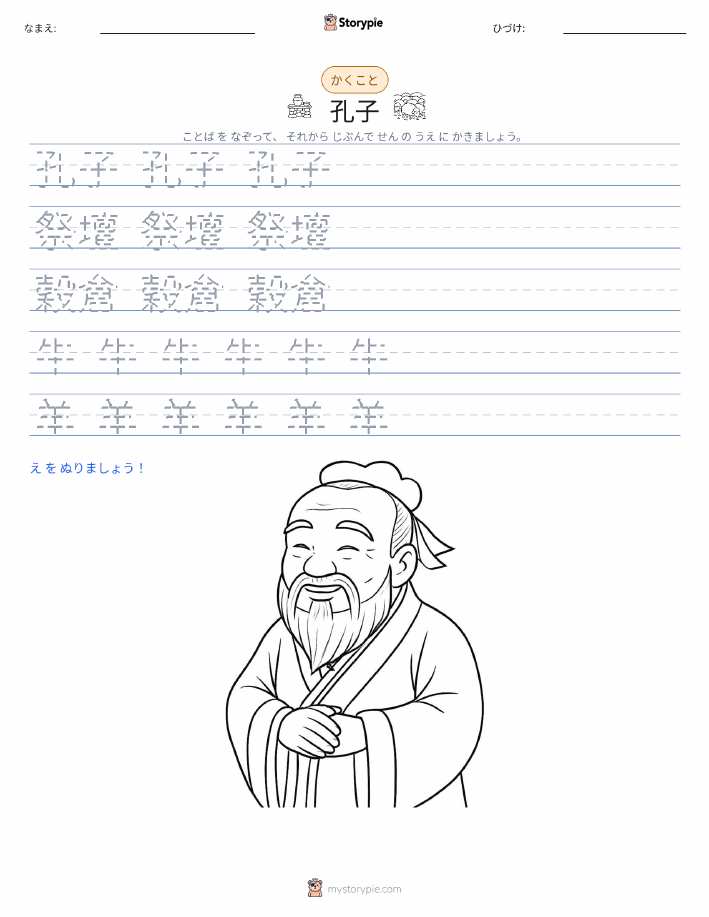 なまえ:
Storypie
ひづけ:
かくこと
孔子
ことば を なぞって、 それから じぶんで せん の うえ に かきましょう。
孔子 孔子 孔子
祭壇 祭壇 祭壇
穀倉 穀倉 穀倉
牛 牛 牛 牛 牛 牛
羊 羊 羊 羊 羊 羊
え を ぬりましょう！
mystorypie.com